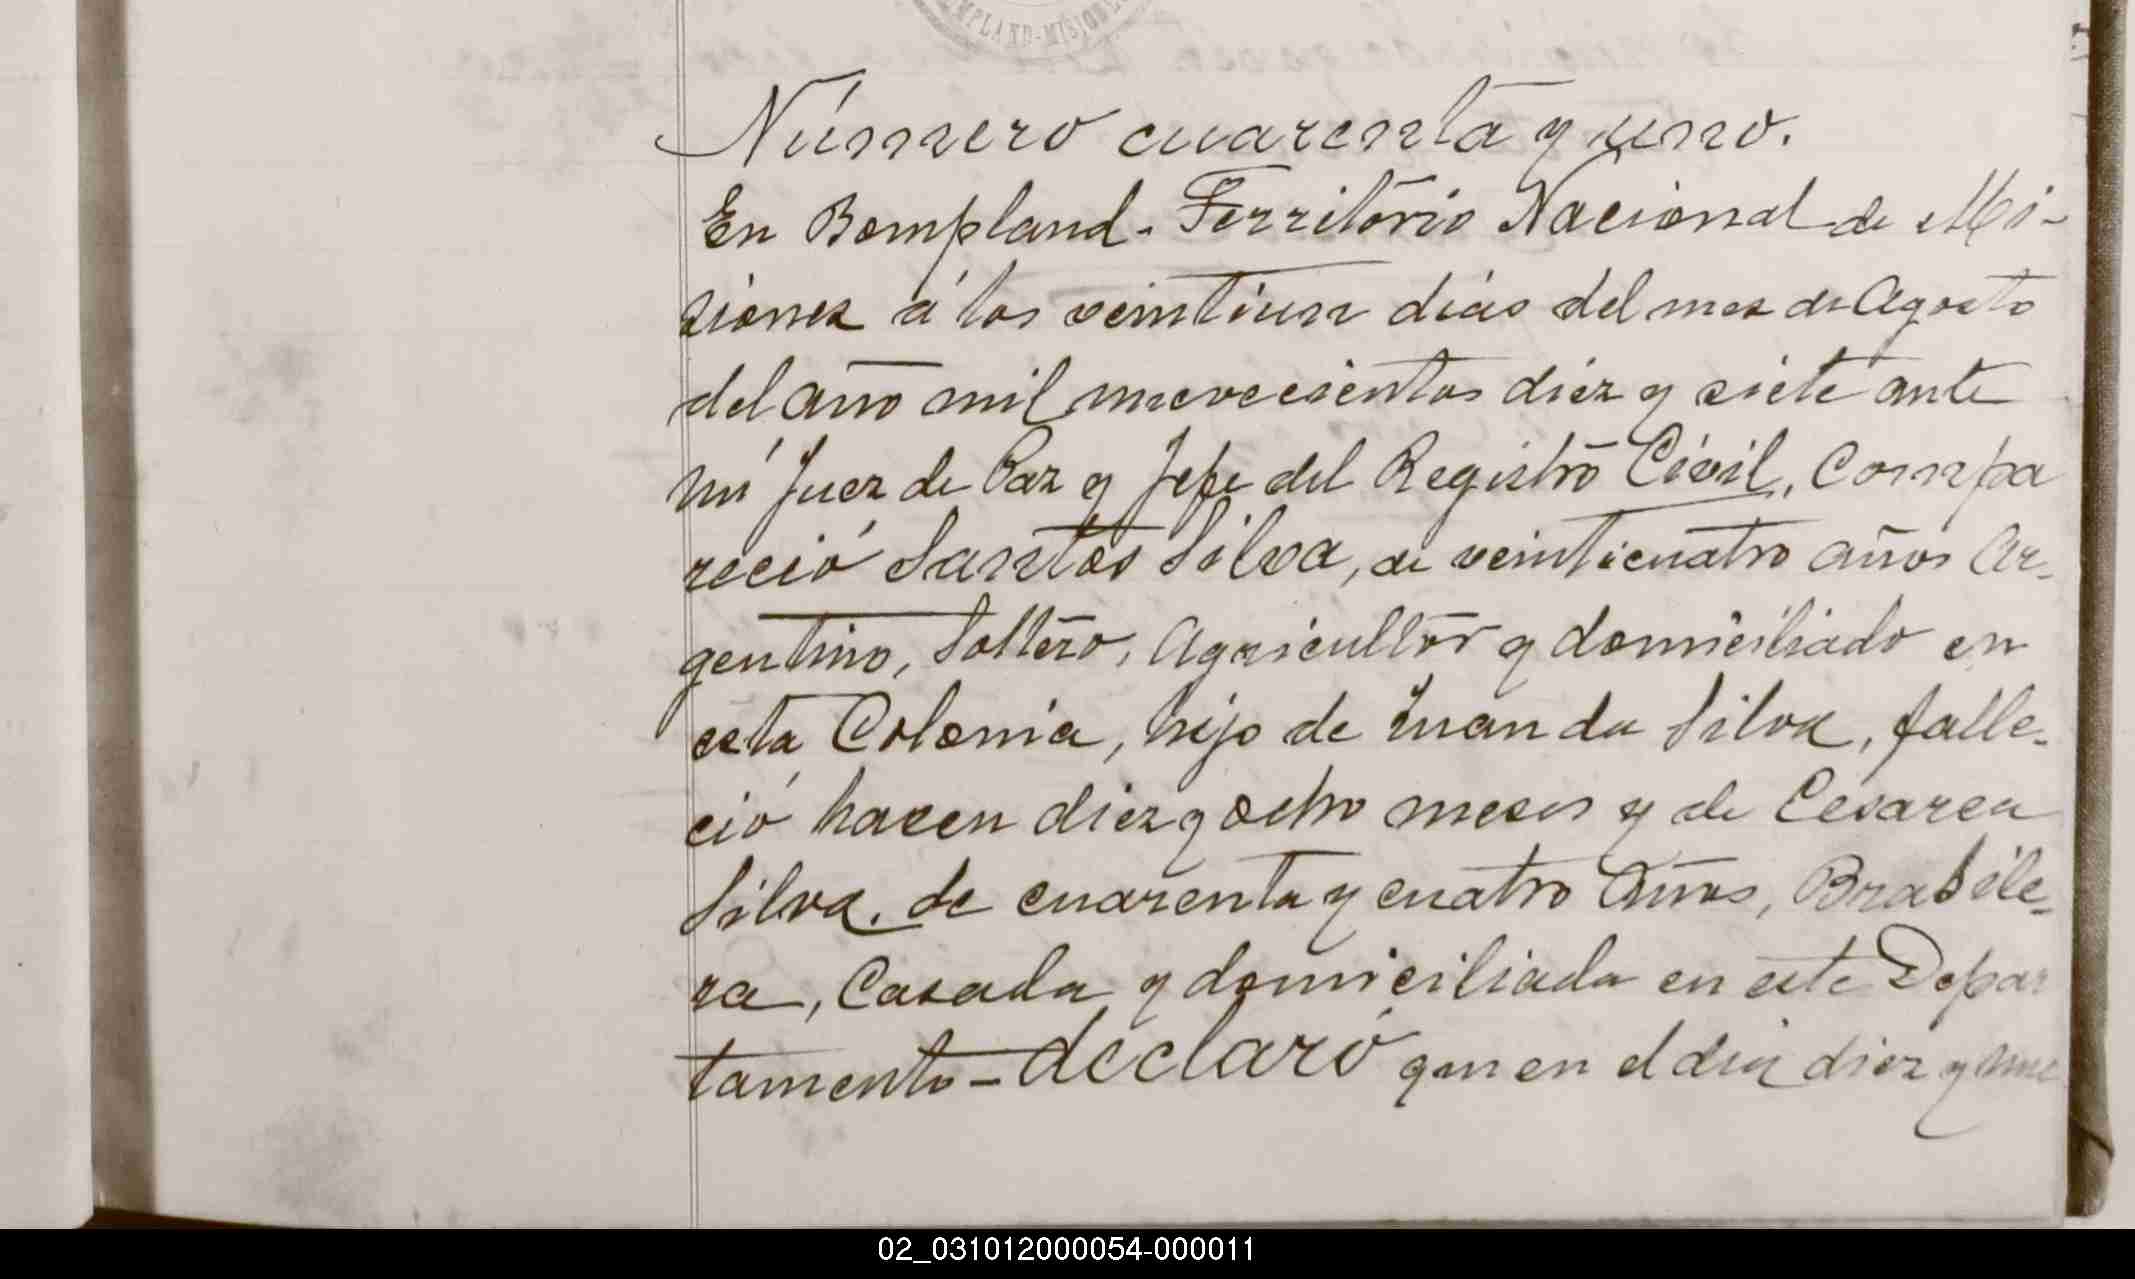 MPLAND-MISIONES
Número cuarenta y uno.
En Bompland - Territorio Nacional de Mi-
siones á los veintiun dias del mes de Agosto
del año mil nuevecientos diez y siete ante
mi Juez de Paz y Jefe del Registro Civil, Compa
reció Santos Silva, de veinticuatro años Ar-
gentino, Soltero, Agricultor y domiciliado en
esta Colonia, hijo de Juan da Silva, falle-
ció hacen diez y ocho meses y de Cesarea
Silva. de cuarenta y cuatro Años, Brasile-
ra, Casada y domiciliada en este Depar
tamento - declaró que en el dia diez y nue
02_031012000054-000011